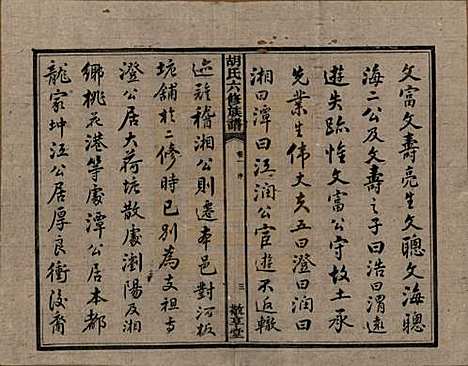 文富文壽亮生文聰文海聰
海二公及文壽之子曰浩曰渭遠
遊失蹤惟文富公守故土承
先業生偉丈夫五曰澄曰润曰
湘曰潭曰江润公宦遊不返轍
胡氏六修族譜
卷一 序
三
敬享堂
迹難稽湘公則遷本邑對河板
塘舖於二修時已别為文祖寺
澄公居大荷塘散處瀏陽及湘
鄉桃花港等處潭公居本都
龍家坤江公居厚良衝後裔